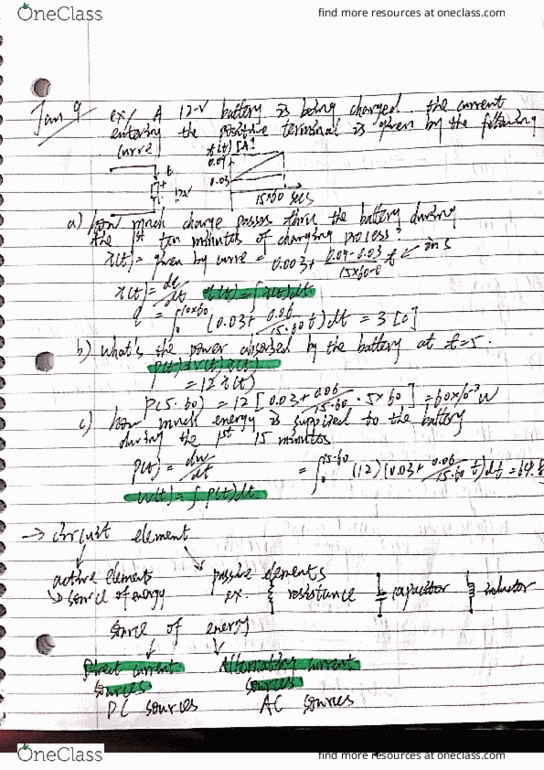 OneClass
find more resources at oneclass.com
Jan 9 ex/ A 12-V battery is being charged. the current
entering the positive terminal is given by the following
curve
i(t) [A]
0.09
0.03
12V
15×60 secs
a) how much charge passes thru the battery during
the 1st ten minutes of charging process?
i(t) = given by curve = 0.003 + 0.09-0.03/15×60-0 t ← in s
i(t) = dq/dt q(t) = ∫i(t)dt
q = ∫₀^10×60 (0.03 + 0.06/15.60 t) dt = 3 [C]
b) What's the power absorbed by the battery at t=5.
P(t) = V(t) i(t)
= 12 i(t)
P(5.60) = 12 [0.03 + 0.06/15.60 · 5×60] = 60×10⁻³ W
c) how much energy is supplied to the battery
during the 1st 15 minutes
P(t) = dw/dt = ∫₀^15.60 (12)(0.03 + 0.06/15.60 t) dt = 648
W(t) = ∫ P(t) dt
→ circuit element
active elements passive elements
↳ source of energy ex. resistance capacitor inductor
source of energy
Direct current Alternating current
sources sources
DC sources AC sources
OneClass
find more resources at oneclass.com